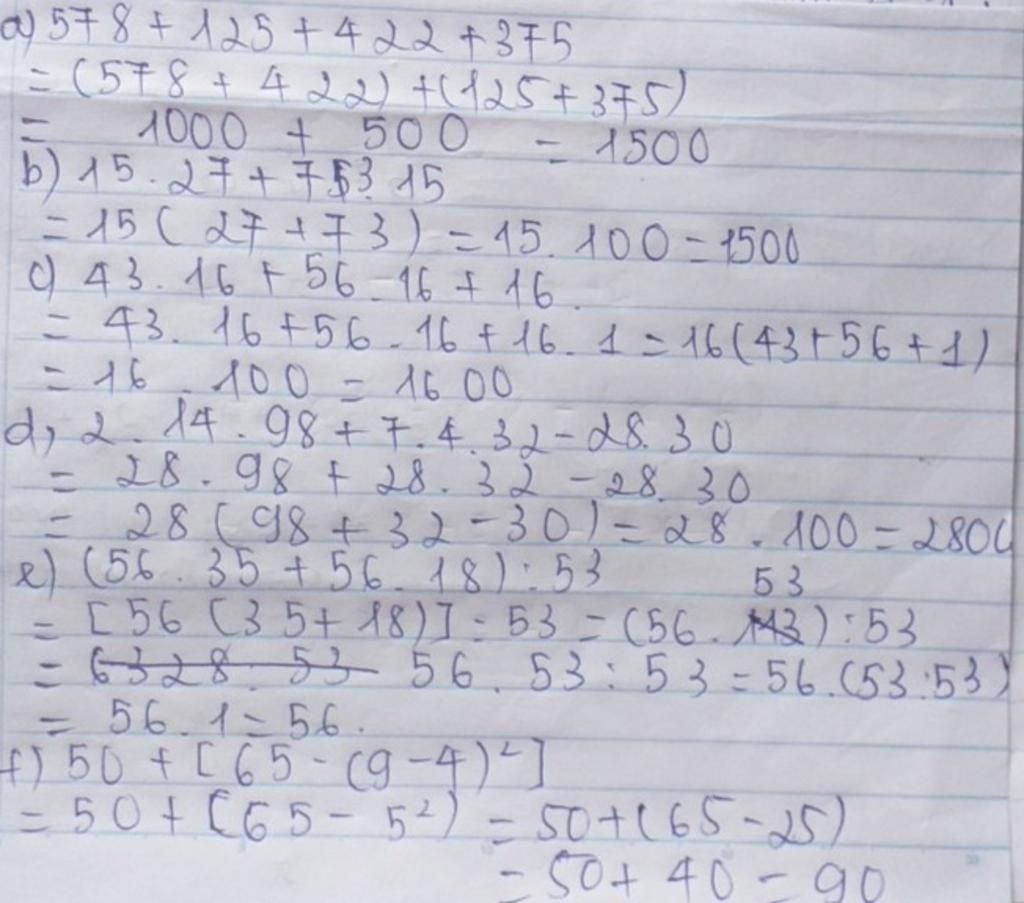 a) 578 + 125 + 422 + 375
= (578 + 422) + (125 + 375)
= 1000 + 500 = 1500
b) 15 . 27 + 73 . 15
= 15 ( 27 + 73 ) = 15 . 100 = 1500
c) 43 . 16 + 56 . 16 + 16 .
= 43 . 16 + 56 . 16 + 16 . 1 = 16 (43 + 56 + 1)
= 16 . 100 = 1600
d, 2 . 14 . 98 + 7 . 4 . 32 - 28 . 30
= 28 . 98 + 28 . 32 - 28 . 30
= 28 ( 98 + 32 - 30 ) = 28 . 100 = 2800
e) (56 . 35 + 56 . 18) : 53
= [ 56 ( 35 + 18) ] : 53 = (56 . 53) : 53
= 6328 : 53 56 . 53 : 53 = 56 . (53 : 53)
= 56 . 1 = 56 .
f) 50 + [ 65 - (9 - 4)² ]
= 50 + [ 65 - 5² ) = 50 + (65 - 25)
= 50 + 40 = 90